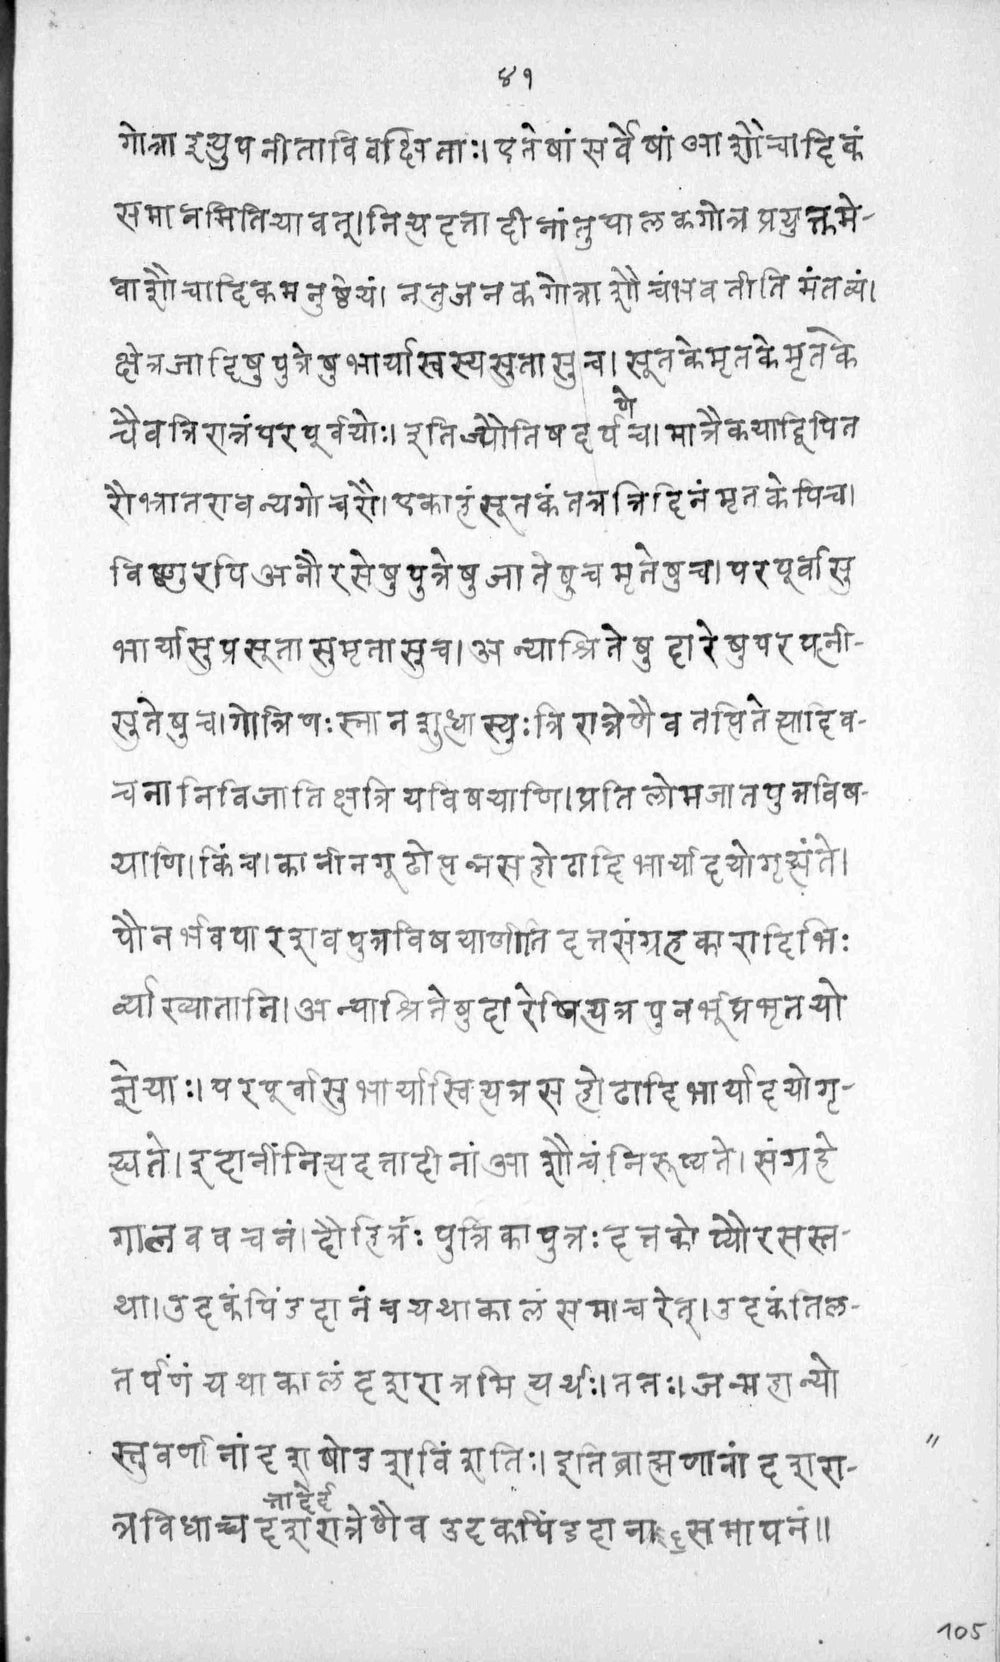 ४१
गोत्रा इत्युपनीता विवक्षिताः। एतेषां सर्वेषां आशौचादिकं
समानमिति यावत्। नित्यदत्तादीनां तु पालकगोत्रप्रयुक्तमे-
वाशौचादिकमनुष्ठेयं। न तु जनकगोत्राशौचं भवतीति मंतव्यं।
क्षेत्रजादिषु पुत्रेषु भार्यास्वस्य सुतासु च। सूतके मृतके मृतके
चैव त्रिरात्रं परपूर्वयोः। इति ज्यौतिषदर्पणे च। मात्रैकया द्विपित
रौ भ्रातरावन्यगोचरौ। एकाहं सूतकं तत्र त्रिदिनं मृतकेपि च।
विष्णुरपि अनौरसेषु पुत्रेषु जातेषु च मृतेषु च। परपूर्वासु
भार्यासु प्रसूतासु मृतासु च। अन्याश्रितेषु दारेषु परपत्नी-
सुतेषु च। गोत्रिणः स्नानशुधा स्युः त्रिरात्रेणैव तत्पितेत्यादि व-
चनानि विजातिक्षत्रियविषयाणि। प्रतिलोमजातपुत्रविष-
याणि। किंच। कानीनगूढोत्पन्नसहोढादिभार्यादयो गृह्यंते।
पौनर्भवपारशवपुत्रविषयाणीति दत्तसंग्रहकारादिभिः
र्व्याख्यातानि। अन्याश्रितेषु दारेष्वित्यत्र पुनर्भूप्रभृतयो
ज्ञेयाः। परपूर्वासु भार्यास्वित्यत्र सहोढादिभार्यादयो गृ-
ह्यते। इदानीं नित्यदत्तादीनां आशौचं निरूप्यते। संग्रहे
गालववचनं। दौहित्रः पुत्रिकापुत्रः दत्तकोप्यौरसस्त-
था। उदकं पिंडदानं च यथाकालं समाचरेत्। उदकं तिल-
तर्पणं यथाकालं दशरात्रमित्यर्थः। ततः। जन्महान्यो
स्तु वर्णानां दशषोडशविंशतिः। इति ब्राह्मणानां दशरा- "
त्रविधा च्च दशरात्रेणैव उदकपिंडदाना समापनं॥
105